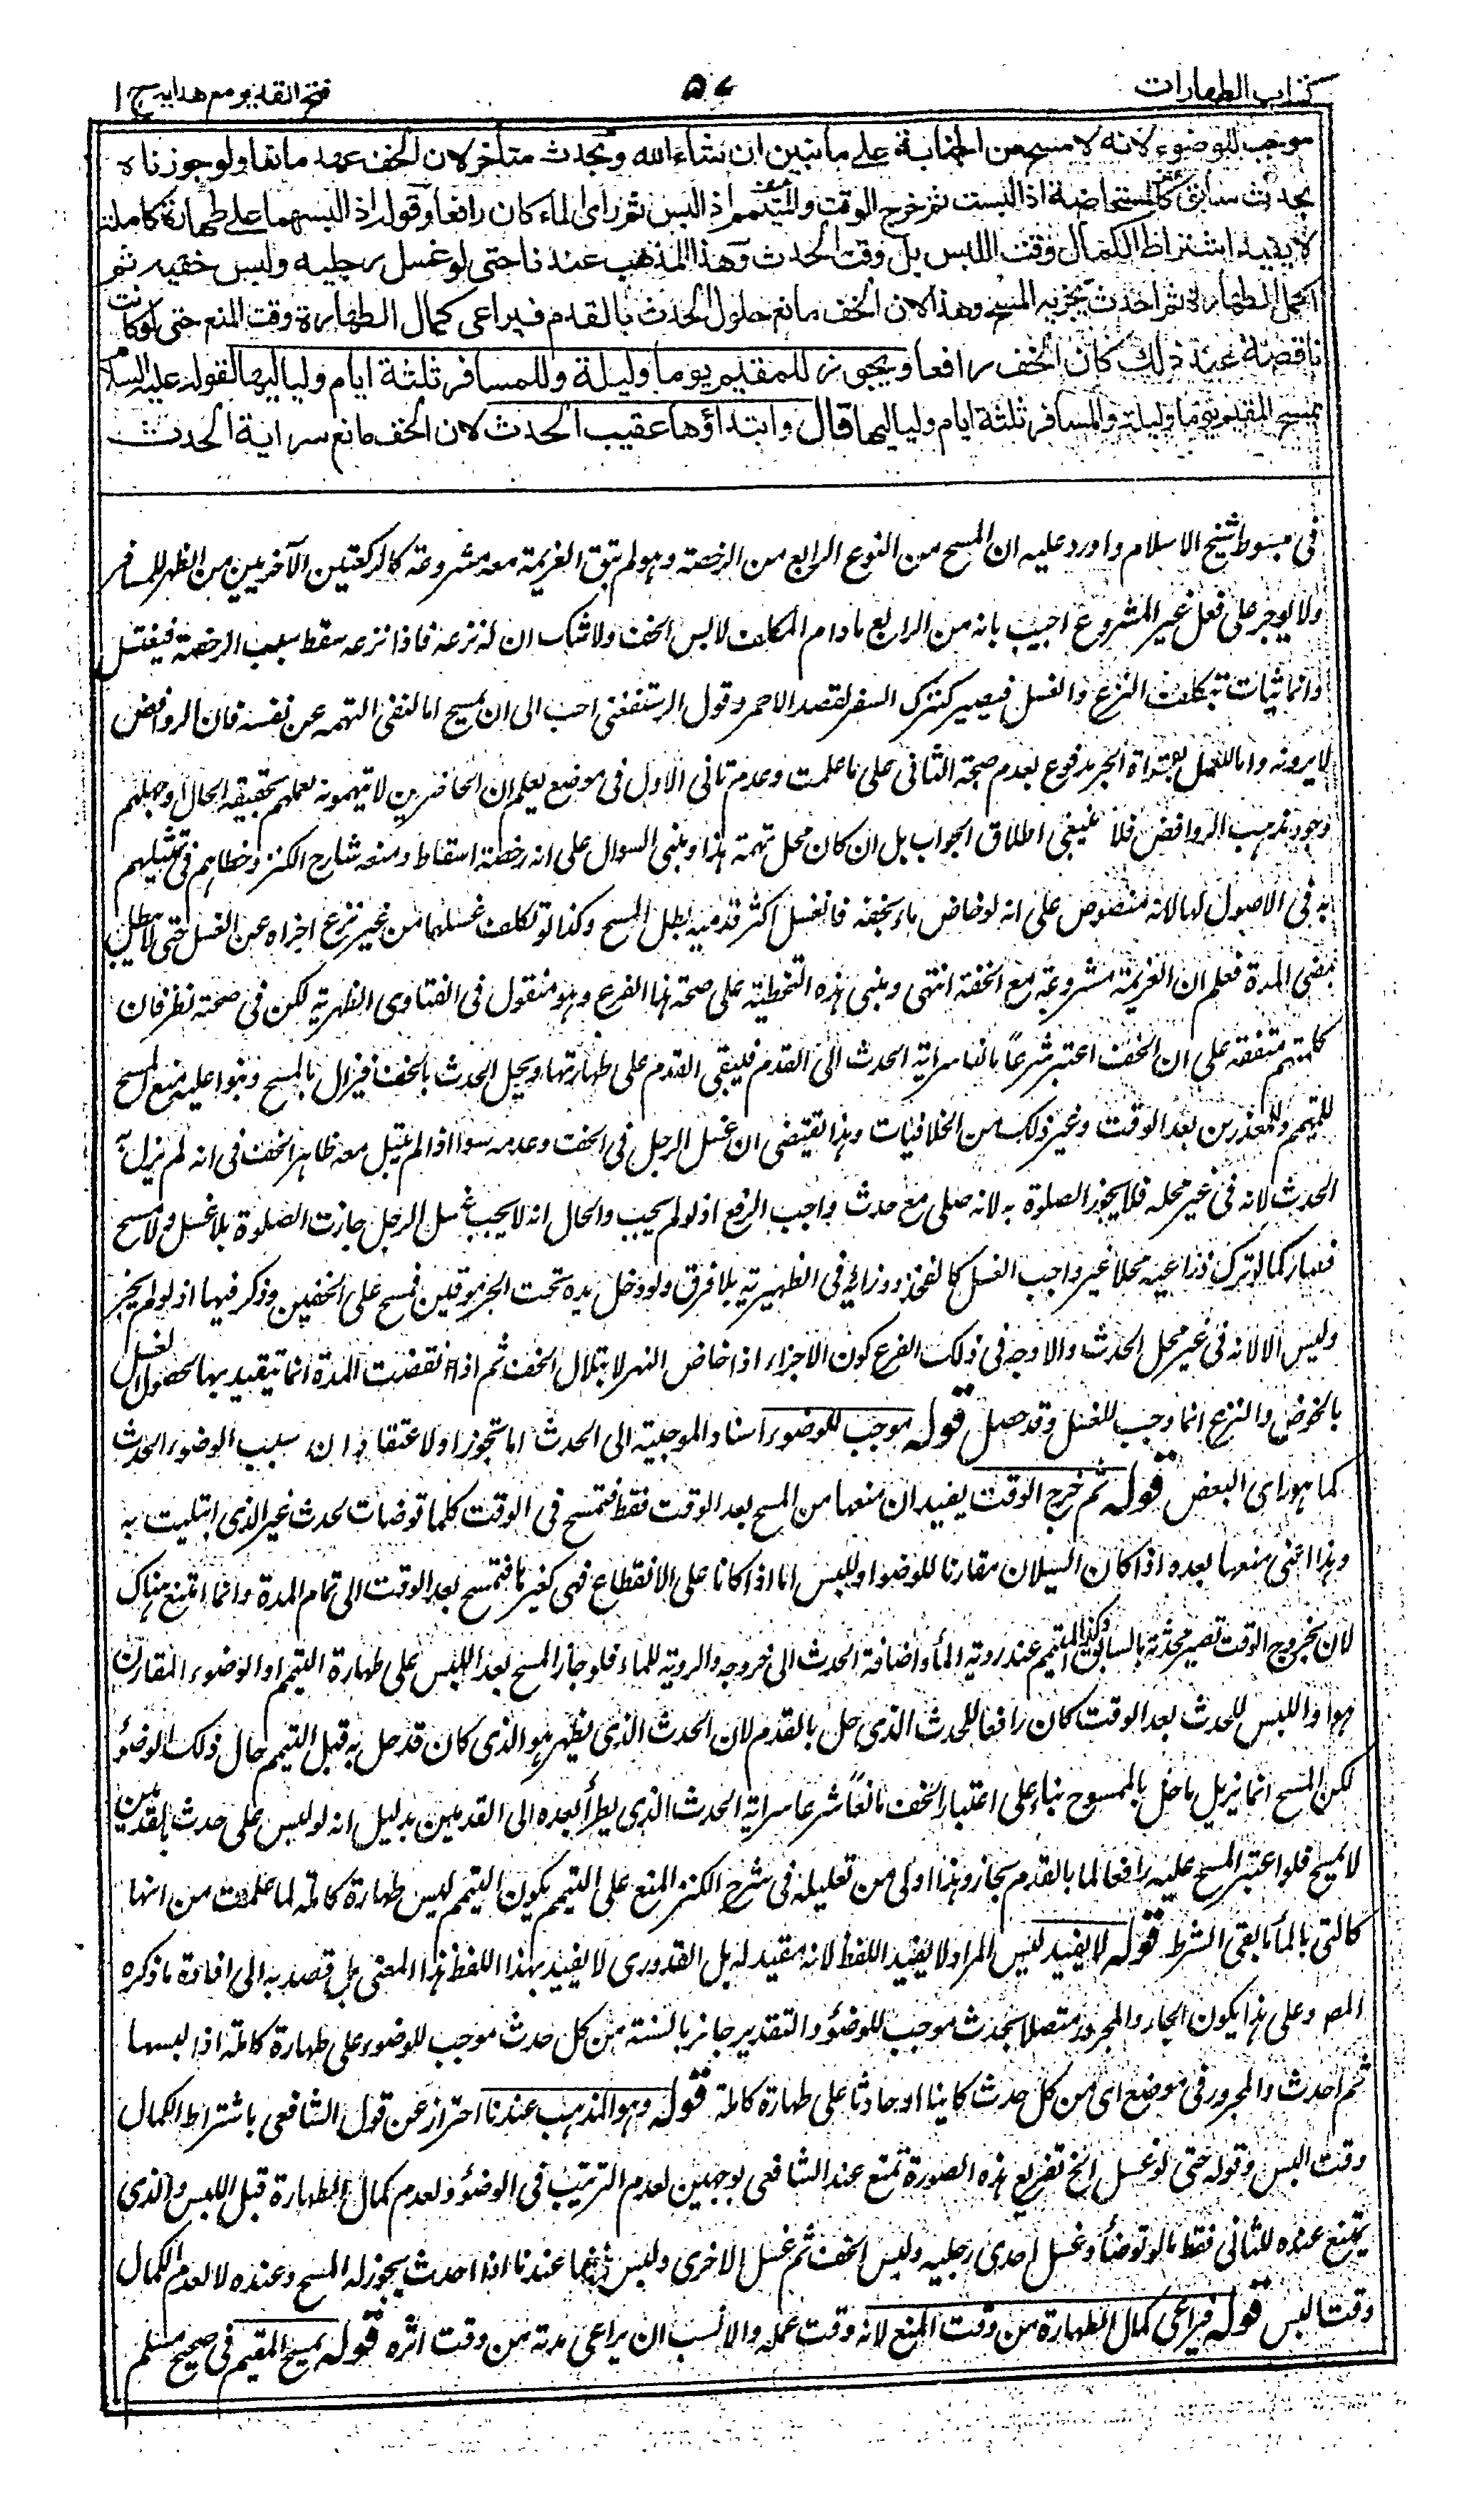 كتاب الطهارات ٥٧ فتح القدير مع هدايه ج ا
موجب للوضوء لانه لا مسح من الجنابة على ما نبين ان شاء الله وبحدث متأخر لان الخف عهد مانعا ولو جوزناه
بحدث سابق كالمستحاضة اذا لبست ثم خرج الوقت والمتيمم اذا لبس ثم رأى الماء كان رافعا وقوله اذا لبسهما على طهارة كاملة
لا يفيد اشتراط الكمال وقت اللبس بل وقت الحدث وهذا المذهب عندنا حتى لو غسل رجليه ولبس خفيه ثم
اكمل الطهارة ثم احدث يجزيه المسح وهذا لان الخف مانع حلول الحدث بالقدم فيراعى كمال الطهارة وقت المنع حتى لو كانت
ناقصة عند ذلك كان الخف رافعا ويجوز للمقيم يوما وليلة وللمسافر ثلثة ايام ولياليها لقوله عليه السلام
يمسح المقيم يوما وليلة والمسافر ثلثة ايام ولياليها قال وابتداؤها عقيب الحدث لان الخف مانع سراية الحدث
فى مبسوط شيخ الاسلام واورد عليه ان المسح من النوع الرابع من الرخصة وهو لم تبق العزيمة معه مشروعة كالركعتين الآخريين من الظهر للمسافر
ولا يوجر على فعل غير المشروع اجيب بانه من الرابع مادام المكلف لابس الخف ولا شك ان له نزعه فاذا نزعه سقط سبب الرخصة فيغتسل
وانما يثاب بتكلف النزع والغسل فيصير كترك السفر لقصد الاحمر وقول الرستغفنى احب الى ان يمسح اما لنفى التهمه عن نفسه فان الروافض
لا يرونه واما للعمل بقراة الجر مدفوع بعدم صحة الثانى على ما علمت وعدم تاتى الاول فى موضع يعلم ان الحاضرين لا يتهمونه لعلمهم بحقيقة الحال او جهلهم
وجود مذهب الروافض فلا ينبغى اطلاق الجواب بل ان كان محل تهمة هذا ومبنى السوال على انه رخصة اسقاط ومنعه شارح الكنز وخطاهم فى تمثيلهم
به فى الاصول لها لانه منصوص على انه لو خاض ماء بخفه فانغسل اكثر قدميه بطل المسح وكذا لو تكلف غسلهما من غير نزع اجزاه عن الغسل حتى لا يبطل
بمضى المدة فعلم ان العزيمة مشروعة مع الخفة انتهى ومبنى هذه التخطية على صحة هذا الفرع وهو منقول فى الفتاوى الظهرية لكن فى صحته نظر فان
كلمتهم متفقه على ان الخف اعتبر شرعا مانعا سراية الحدث الى القدم فيبقى القدم على طهارتها ويحل الحدث بالخف فيزال بالمسح وبنوا عليه منع المسح
للمتيمم والمعذرين بعد الوقت وغير ذلك من الخلافيات وهذا يقتضى ان غسل الرجل فى الخف وعدمه سواا اذا لم يبتل معه ظاهر الخف فى انه لم يزل به
الحدث لانه فى غير محله فلا يجوز الصلوة به لانه صلى مع حدث واجب الرفع اذ لو لم يجب والحال انه لا يجب غسل الرجل جازت الصلوة بلا غسل ولا مسح
فصار كما لو ترك ذراعيه محلا غير واجب الغسل كالفخذ ووزانه فى الظهيرية بلا فرق ولو دخل يده تحت الجرموقين فمسح على الخفين وذكر فيها انه لم يجز
وليس الا لانه فى غير محل الحدث والاوجه فى ذلك الفرع كون الاجزاء اذا خاض النهر لابتلال الخف ثم اذا انقضت المدة انما يتقيد بها لحصول الغسل
بالخوض والنزع انما وجب للغسل وقد حصل قوله موجب للوضوء اسناد الموجبية الى الحدث اما تجوزا ولا عتقاد ان سبب الوضوء الحدث
كما هو راى البعض قوله ثم خرج الوقت يفيد ان منعها من المسح بعد الوقت فقط فتمسح فى الوقت كلما توضات لحدث غير الذى ابتليت به
وهذا اعنى منعها بعده اذا كان السيلان مقارنا للوضوا واللبس اما اذا كانا على الانقطاع فهى كغيرها فتمسح بعد الوقت الى تمام المدة وانما امتنع هناك
لان بخروج الوقت تصير محدثة بالسابق وكذا المتيمم عند روية الما واضافة الحدث الى خروجه والروية للماء فلو جاز المسح بعد اللبس على طهارة التيمم او الوضوء المقارن
هو او اللبس للحدث بعد الوقت كان رافعا للحدث الذى حل بالقدم لان الحدث الذى يظهر هو الذى كان قد حل به قبل التيمم حال ذلك الوضؤ
لكن المسح انما يزيل ما حل بالممسوح بناء على اعتبار الخف مانعا شرعا سراية الحدث الذى يطرأ بعده الى القدمين بدليل انه لو لبس على حدث بالقدمين
لا يمسح فلو اعتبر المسح عليه رافعا لما بالقدم لجاز وهذا اولى من تعليله فى شرح الكنز المنع على التيمم بكون التيمم ليس طهارة كاملة لما علمت من انها
كالتى بالماء مابقى الشرط قوله لا يفيد ليس المراد لا يفيد اللفظ لانه مقيد له بل القدورى لا يفيد بهذا اللفظ هذا المعنى بل قصد به الى افادة ما ذكره
المص وعلى هذا يكون الجار والمجرور متصلا بحدث موجب للوضؤ والتقدير جائز بالسنة من كل حدث موجب للوضوء على طهارة كاملة اذا لبسها
ثم احدث والمجرور فى موضع اى من كل حدث كاينا او حادثا على طهارة كاملة قوله وهو المذهب عندنا احتراز عن قول الشافعى باشتراط الكمال
وقت اللبس وقوله حتى لو غسل الخ تفريع هذه الصورة تمتنع عند الشافعى بوجهين لعدم الترتيب فى الوضؤ ولعدم كمال الطهارة قبل اللبس والذى
يمتنع عنده للثانى فقط مالو توضأ وغسل احدى رجليه ولبس الخف ثم غسل الاخرى ولبس خفها عندنا اذا احدث يجوز له المسح وعنده لا لعدم الكمال
وقت اللبس قوله فيراعى كمال الطهارة من وقت المنع لانه وقت عمله والانسب ان يراعى مدته من وقت اثره قوله يمسح المقيم فى صحيح مسلم